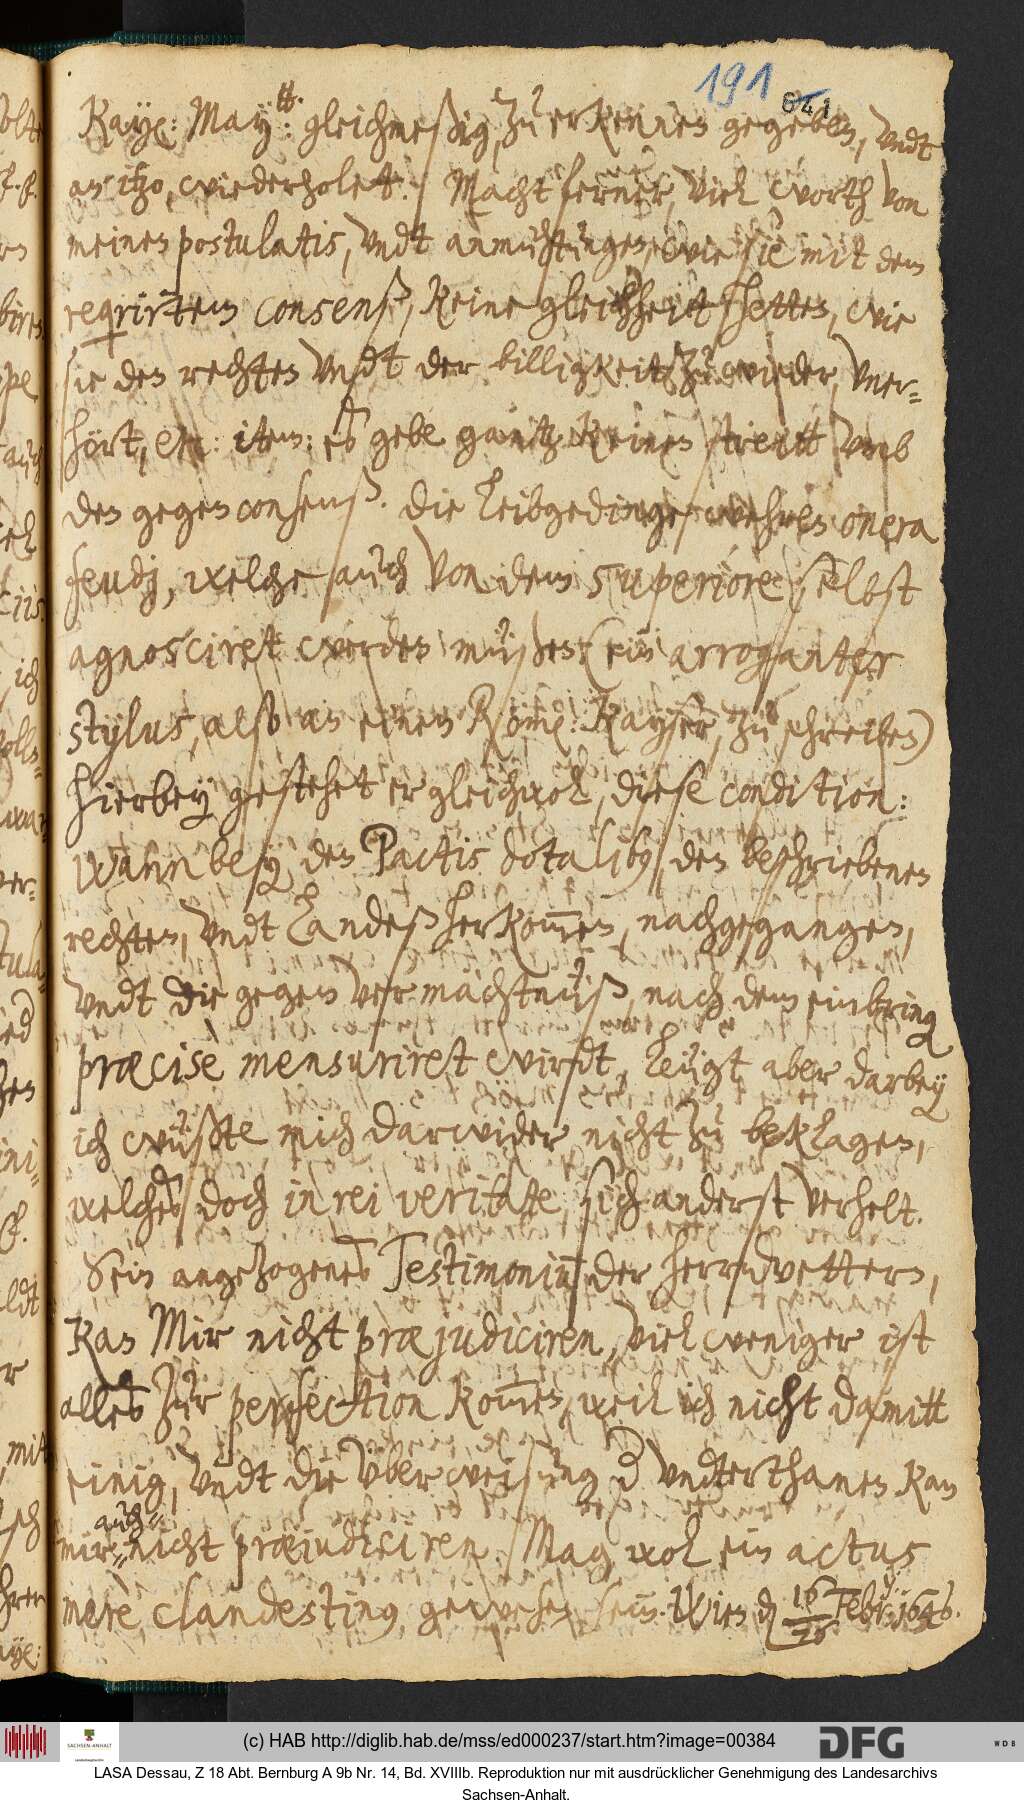 191
641
Kayß: May:tt: gleichmeßig, zu erkennen gegeben, undt
an itzo, wiederholet. Macht ferner, viel worth von
meinen postulatis, undt anmuhtungen, wie sie mit dem
reqrirtem consenß, keine gleichheitt hetten, wie
sie den rechten undt der billigkeitt zu wieder, uner-
hört, etc: item: es gebe gantz keinen streitt umb
den gegen consenß. Die Leibgedinge wehren onera
feudj, welche auch von dem superiore selbst
agnosciret werden müßen: (ein arroganter
stylus, also an einen Röm: Kayser, zu schreiben)
Hierbey gestehet er gleichwol, diese condition:
Wann besy den Pactis dotalibus, den beschriebenen
rechten, undt Landeßherkommen, nachgegangen,
undt die gegen vermächtnüß, nach dem einbring
præcisè mensuriret wirdt, Leugt aber darbey
ich wüßte mich darwider nicht zu beklagen,
welches doch in rei veritate sich anderst verhelt.
Sein angezogenes Testimonium der herrnvettern,
kan Mir nicht præjudiciren, viel weniger ist
alles zur perfection kommen, weil ich nicht damitt
einig, undt die überweisung d undterthanen kan
mir auch nicht præjudiciren. Mag wol ein actus
merè clandestinus gewesen sein. Wien den 16/26 Febr: 1646.
(c) HAB http://diglib.hab.de/mss/ed000237/start.htm?image=00384
DFG
WDB
SACHSEN-ANHALT
LASA Dessau, Z 18 Abt. Bernburg A 9b Nr. 14, Bd. XVIIIb. Reproduktion nur mit ausdrücklicher Genehmigung des Landesarchivs
Sachsen-Anhalt.